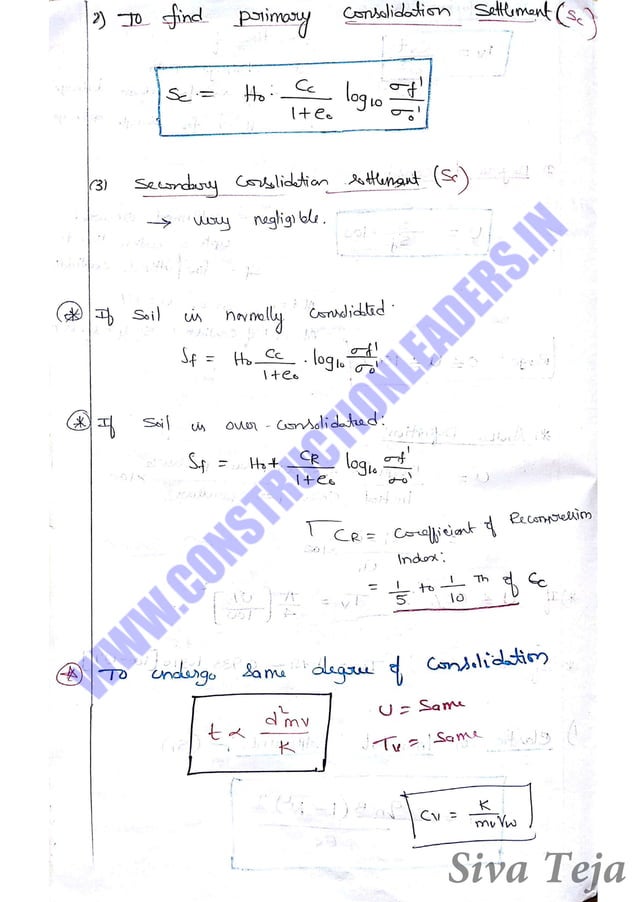 2) To find primary Consolidation Settlement (Sc)
Sc = H₀ · Cc/(1+e₀) log₁₀ σf'/σ₀'
(3) Secondary Consolidation settlement (Sc)
→ very negligible.
* If Soil is normally Consolidted:
Sf = H₀ Cc/(1+e₀) · log₁₀ σf'/σ₀'
* If Soil is over-Consolidated:
Sf = H₀ + CR/(1+e₀) log₁₀ σf'/σ₀'
CR = Coefficient of Recompression
Index:
= 1/5 to 1/10 Th of Cc
* To undergo same degree of Consolidation
t ∝ d²mv/K
U = Same
Tv = Same
Cv = K/(mv γw)
WWW.CONSTRUCTIONLEADERS.IN
Siva Teja